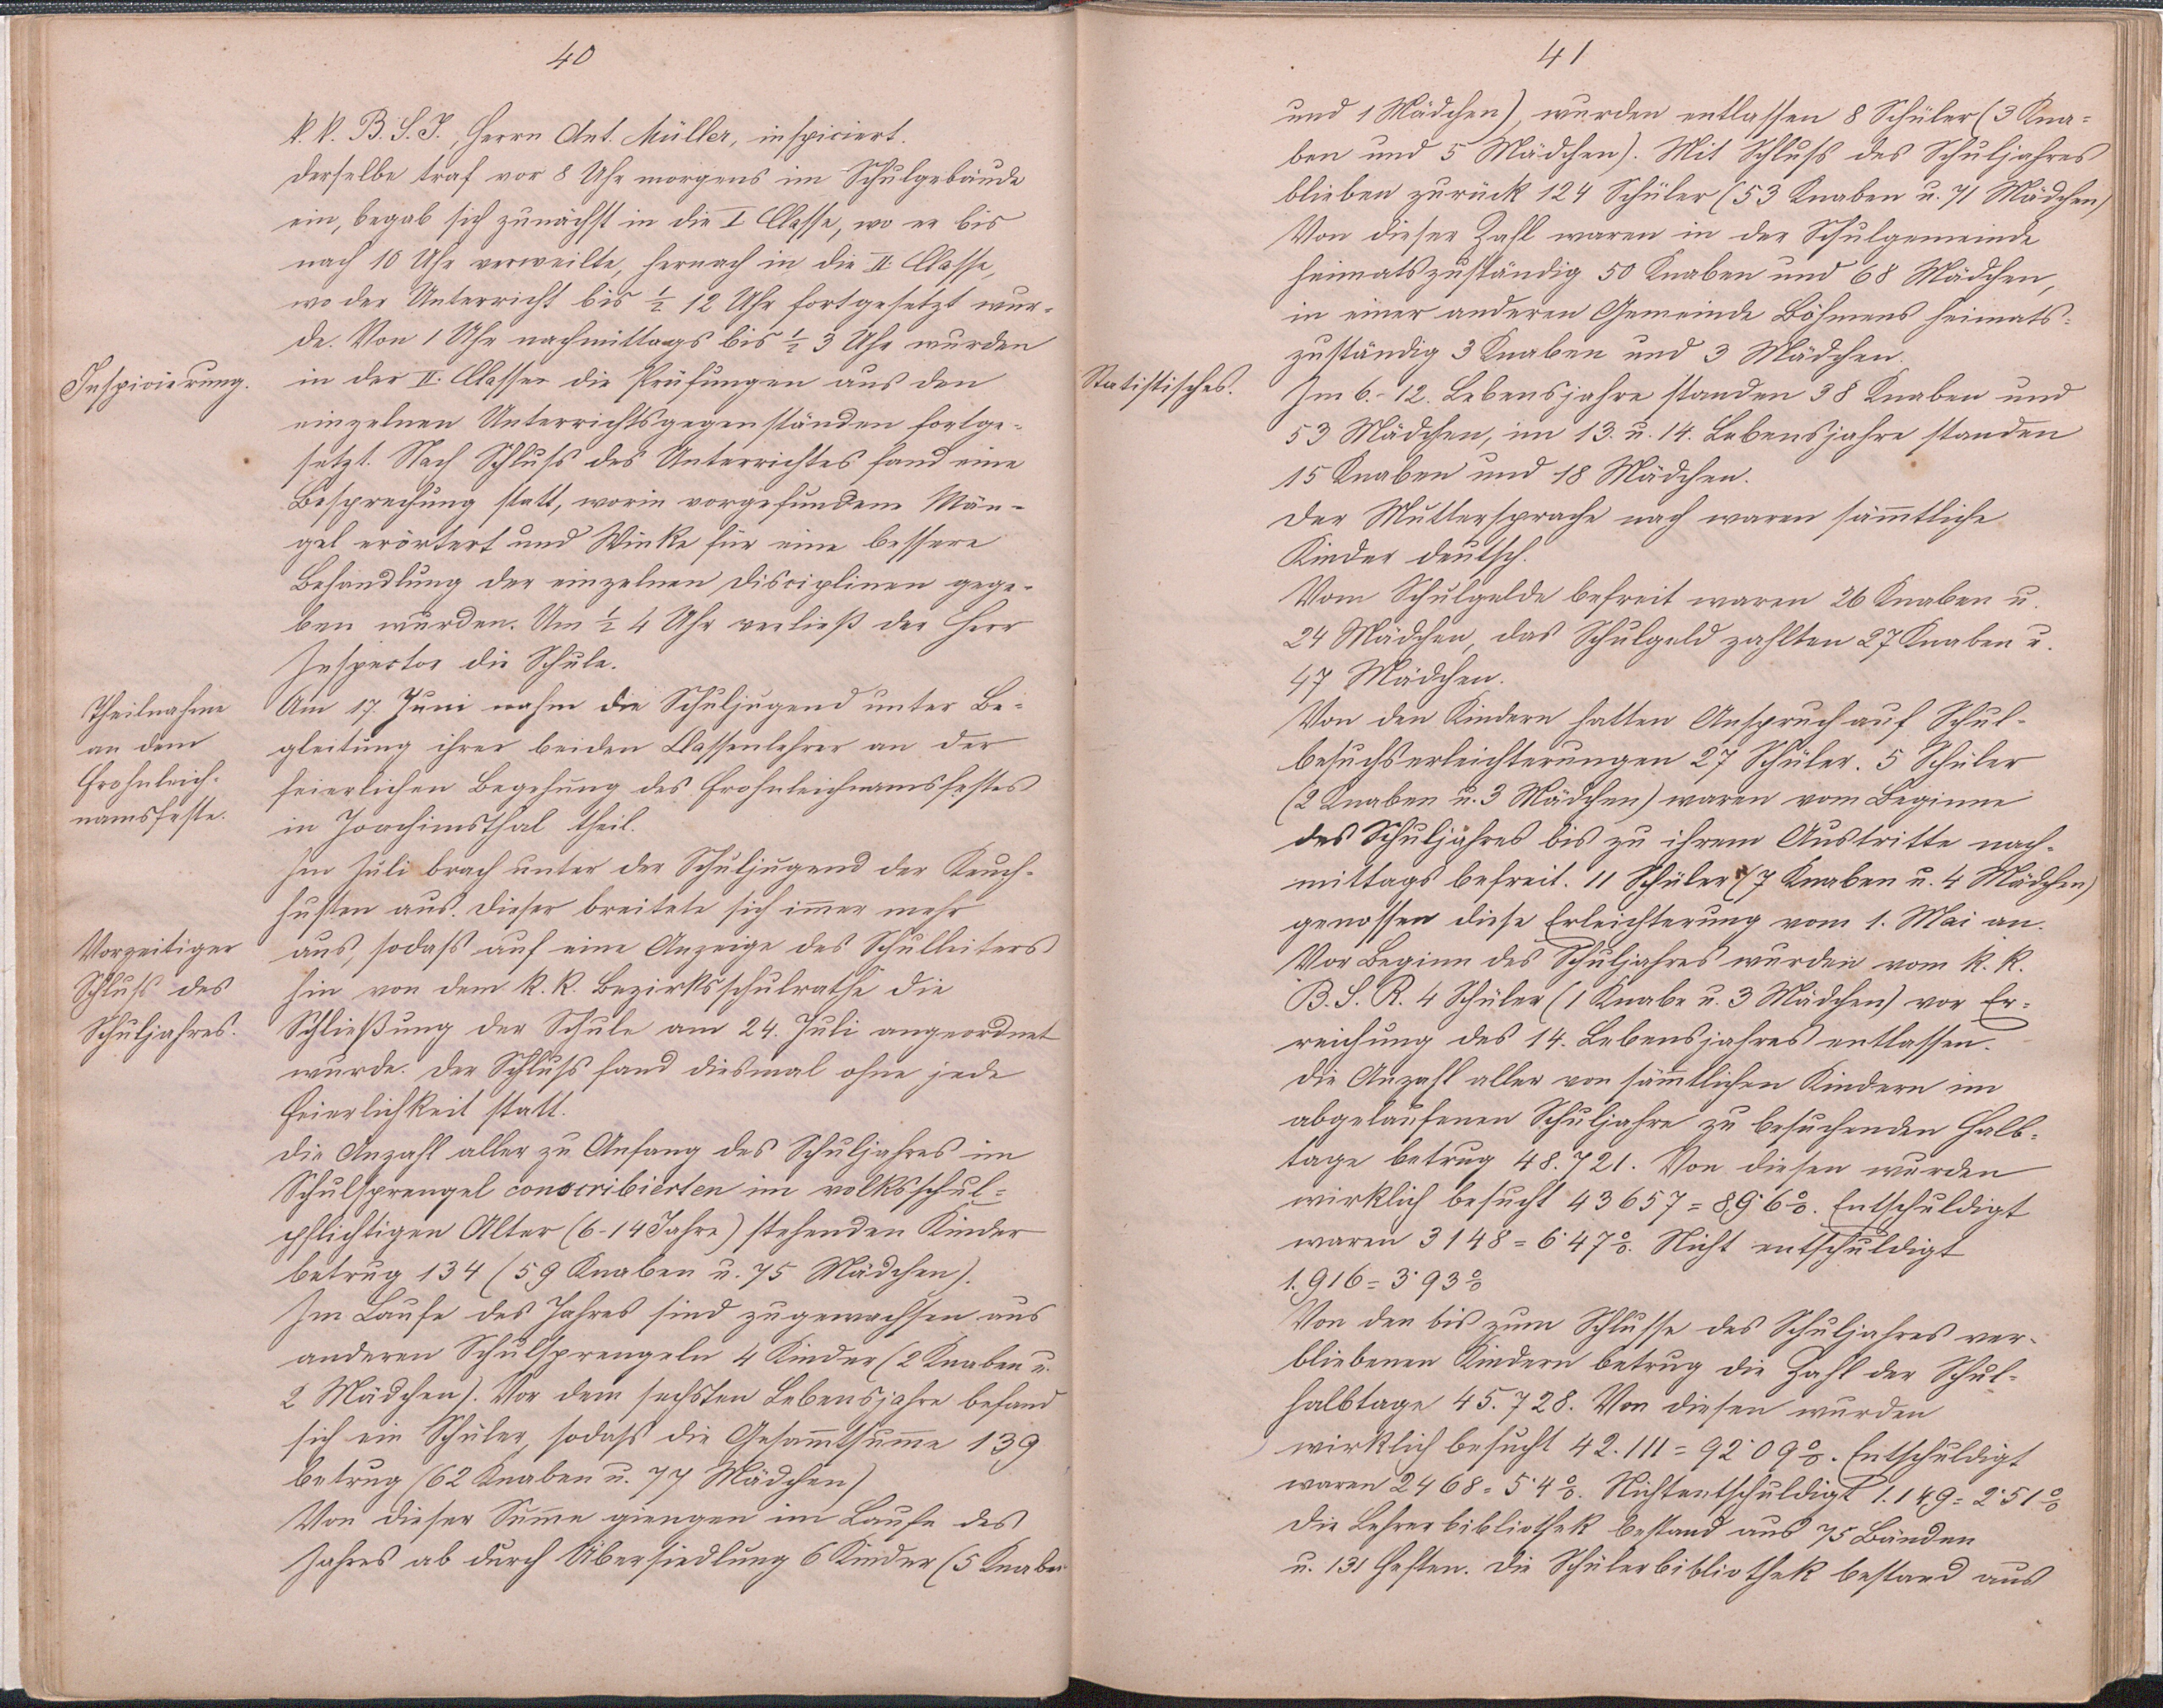 40
k. k. B. S. I., Herrn Ant. Müller, inspiciert.
Derselbe traf vor 8 Uhr morgens im Schulgebäude
ein, begab sich zunächst in die I Classe, wo er bis
nach 10 Uhr verweilte, hernach in die II. Classe,
wo der Unterricht bis ½ 12 Uhr fortgesetzt wur-
de. Von 1 Uhr nachmittags bis ½ 3 Uhr wurden
Inspicierung.
in der II. Classe die Prüfungen aus den
einzelnen Unterrichtsgegenständen fortge-
setzt. Nach Schluß des Unterrichtes fand eine
Besprechung statt, worin vorgefundene Män-
gel erörtert und Winke für eine bessere
Behandlung der einzelnen Disciplinen gege-
ben wurden. Um ½ 4 Uhr verließ der Herr
Inspector die Schule.
Theilnahme
an dem
Frohnleich-
namsfeste.
Am 17. Juni nahm die Schuljugend unter Be-
gleitung ihrer beiden Classenlehrer an der
feierlichen Begehung des Frohnleichnamsfestes
in Joachimsthal theil.
Im Juli brach unter der Schuljugend der Keuch-
husten aus. Dieser breitete sich imer mehr
Vorzeitiger
Schluß des
Schuljahres.
aus, sodaß auf eine Anzeige des Schulleiters
hin von dem k. k. Bezirksschulrathe die
Schließung der Schule am 24. Juli angeordnet
wurde. Der Schluß fand diesmal ohne jede
Feierlichkeit statt.
Die Anzahl aller zu Anfang des Schuljahres im
Schulsprengel conscribierten im volksschul-
pflichtigen Alter (6-14 Jahre) stehenden Kinder
betrug 134 (59 Knaben u. 75 Mädchen).
Im Laufe des Jahres sind zugewachsen aus
anderen Schulsprengeln 4 Kinder (2 Knaben u.
2 Mädchen). Vor dem sechsten Lebensjahre befand
sich ein Schüler, sodaß die Gesamtsume 139
betrug (62 Knaben u. 77 Mädchen)
Von dieser Sume giengen im Laufe des
Jahres ab durch Übersiedlung 6 Kinder (5 Knaben
41
und 1 Mädchen), wurden entlassen 8 Schüler (3 Kna-
ben und 5 Mädchen). Mit Schluß des Schuljahres
blieben zurück 124 Schüler (53 Knaben u. 71 Mädchen)
Von dieser Zahl waren in der Schulgemeinde
heimatszuständig 50 Knaben und 68 Mädchen,
in einer anderen Gemeinde Böhmens heimats-
zuständig 3 Knaben und 3 Mädchen.
Statistisches.
Im 6.-12. Lebensjahre standen 38 Knaben und
53 Mädchen, im 13. u. 14. Lebensjahre standen
15 Knaben und 18 Mädchen.
Der Muttersprache nach waren sämtliche
Kinder deutsch.
Vom Schulgelde befreit waren 26 Knaben u.
24 Mädchen, das Schulgeld zahlten 27 Knaben u.
47 Mädchen.
Von den Kindern hatten Anspruch auf Schul-
besuchserleichterungen 27 Schüler. 5 Schüler
(2 Knaben u. 3 Mädchen) waren vom Beginne
des Schuljahres bis zu ihrem Austritte nach-
mittags befreit. 11 Schüler (7 Knaben u. 4 Mädchen)
genossen diese Erleichterung vom 1. Mai an.
Vor Beginn des Schuljahres wurden vom k. k.
B. S. R. 4 Schüler (1 Knabe u. 3 Mädchen) vor Er-
reichung des 14. Lebensjahres entlassen.
Die Anzahl aller von sämtlichen Kindern im
abgelaufenen Schuljahre zu besuchenden Halb-
tage betrug 48.721. Von diesen wurden
wirklich besucht 43657 = 89·6%. Entschuldigt
waren 3148 = 6·47%. Nicht entschuldigt
1.916 = 3·93%
Von den bis zum Schlusse des Schuljahres ver-
bliebenen Kindern betrug die Zahl der Schul-
halbtage 45.728. Von diesen wurden
wirklich besucht 42.111 = 92·09%. Entschuldigt
waren 2468 = 5·4%. Nichtentschuldigt 1.149 = 2·51%
Die Lehrerbibliothek bestand aus 75 Bänden
u. 131 Heften. Die Schülerbibliothek bestand aus